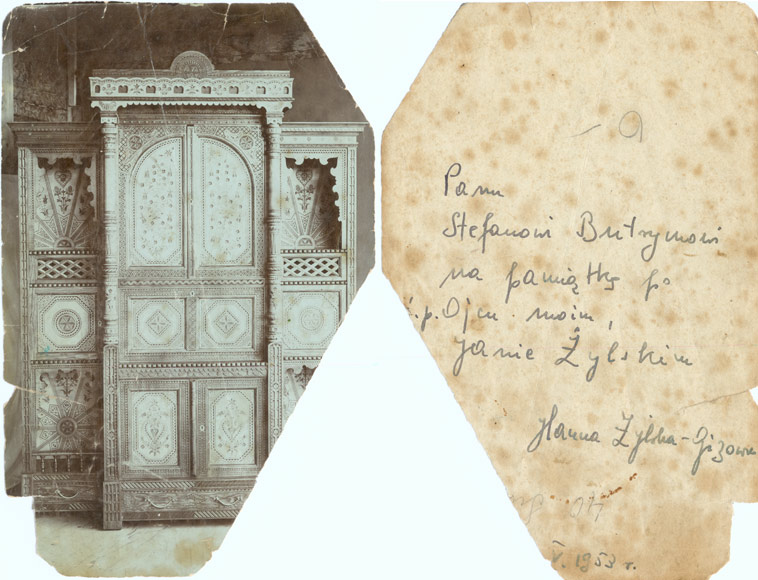 Panu
Stefanowi Butrymowi
na pamiątkę po
ś.p. Ojcu moim,
Janie Żylskim
Hanna Żylska-Gizowa
V. 1953 r.